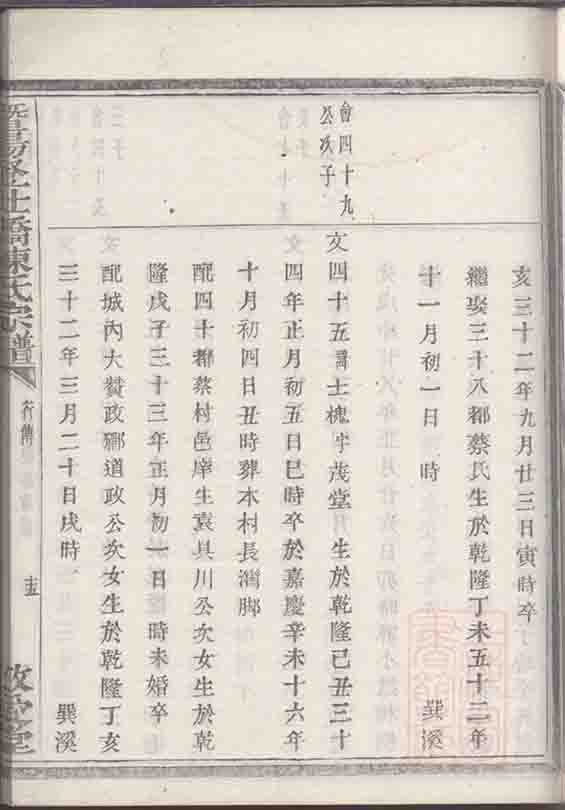 亥三十二年九月廿三日寅時卒
繼娶三十八都蔡氏生於乾隆丁未五十二年
十一月初一日 時 巽溪
會四十九
公次子
文四十五諱士槐字茂堂 生於乾隆己丑三十
四年正月初五日巳時卒於嘉慶辛未十六年
十月初四日丑時葬本村長灣脚
配四十都蔡村邑庠生袁具川公次女生於乾
隆戊子三十三年正月初一日 時未婚卒
配城內大贊政酈道政公次女生於乾隆丁亥
三十二年三月二十日戌時 巽溪
暨陽 仕橋陳氏宗譜
行傳